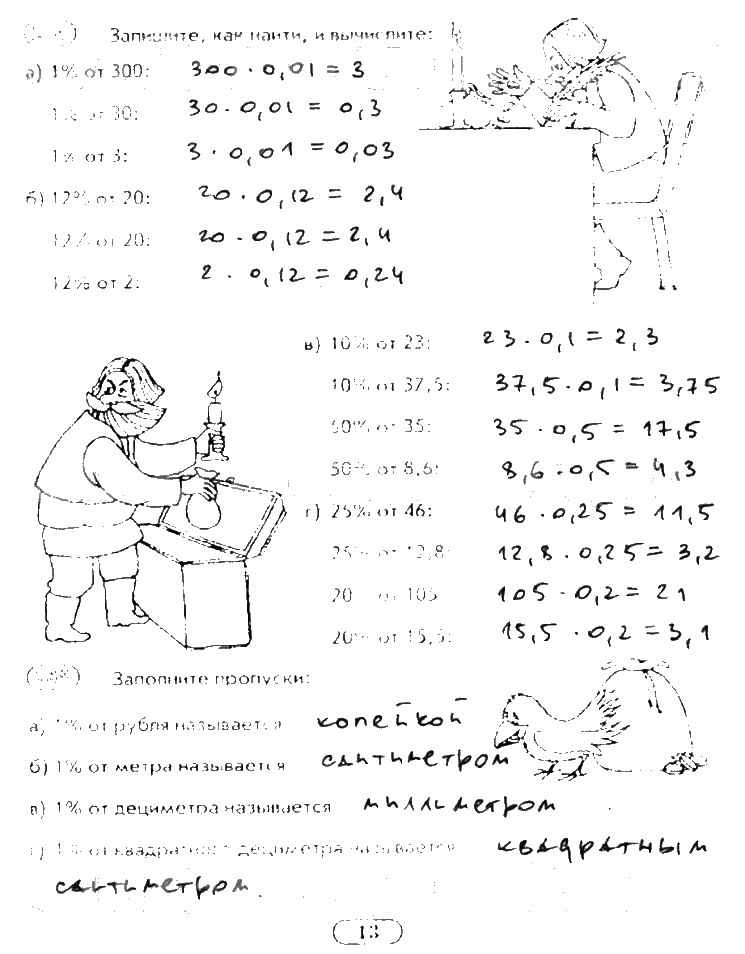 Запишите, как найти, и вычислите:
а) 1% от 300: 300 · 0,01 = 3
1% от 30: 30 · 0,01 = 0,3
1% от 3: 3 · 0,01 = 0,03
б) 12% от 20: 20 · 0,12 = 2,4
12% от 20: 20 · 0,12 = 2,4
12% от 2: 2 · 0,12 = 0,24
в) 10% от 23: 23 · 0,1 = 2,3
10% от 37,5: 37,5 · 0,1 = 3,75
50% от 35: 35 · 0,5 = 17,5
50% от 8,6: 8,6 · 0,5 = 4,3
г) 25% от 46: 46 · 0,25 = 11,5
25% от 12,8: 12,8 · 0,25 = 3,2
20 от 105 105 · 0,2 = 21
20% от 15,5: 15,5 · 0,2 = 3,1
Заполните пропуски:
а) 1% от рубля называется копейкой
б) 1% от метра называется сантиметром
в) 1% от дециметра называется миллиметром
г) 1% от квадратного дециметра называется квадратным
сантиметром.
13